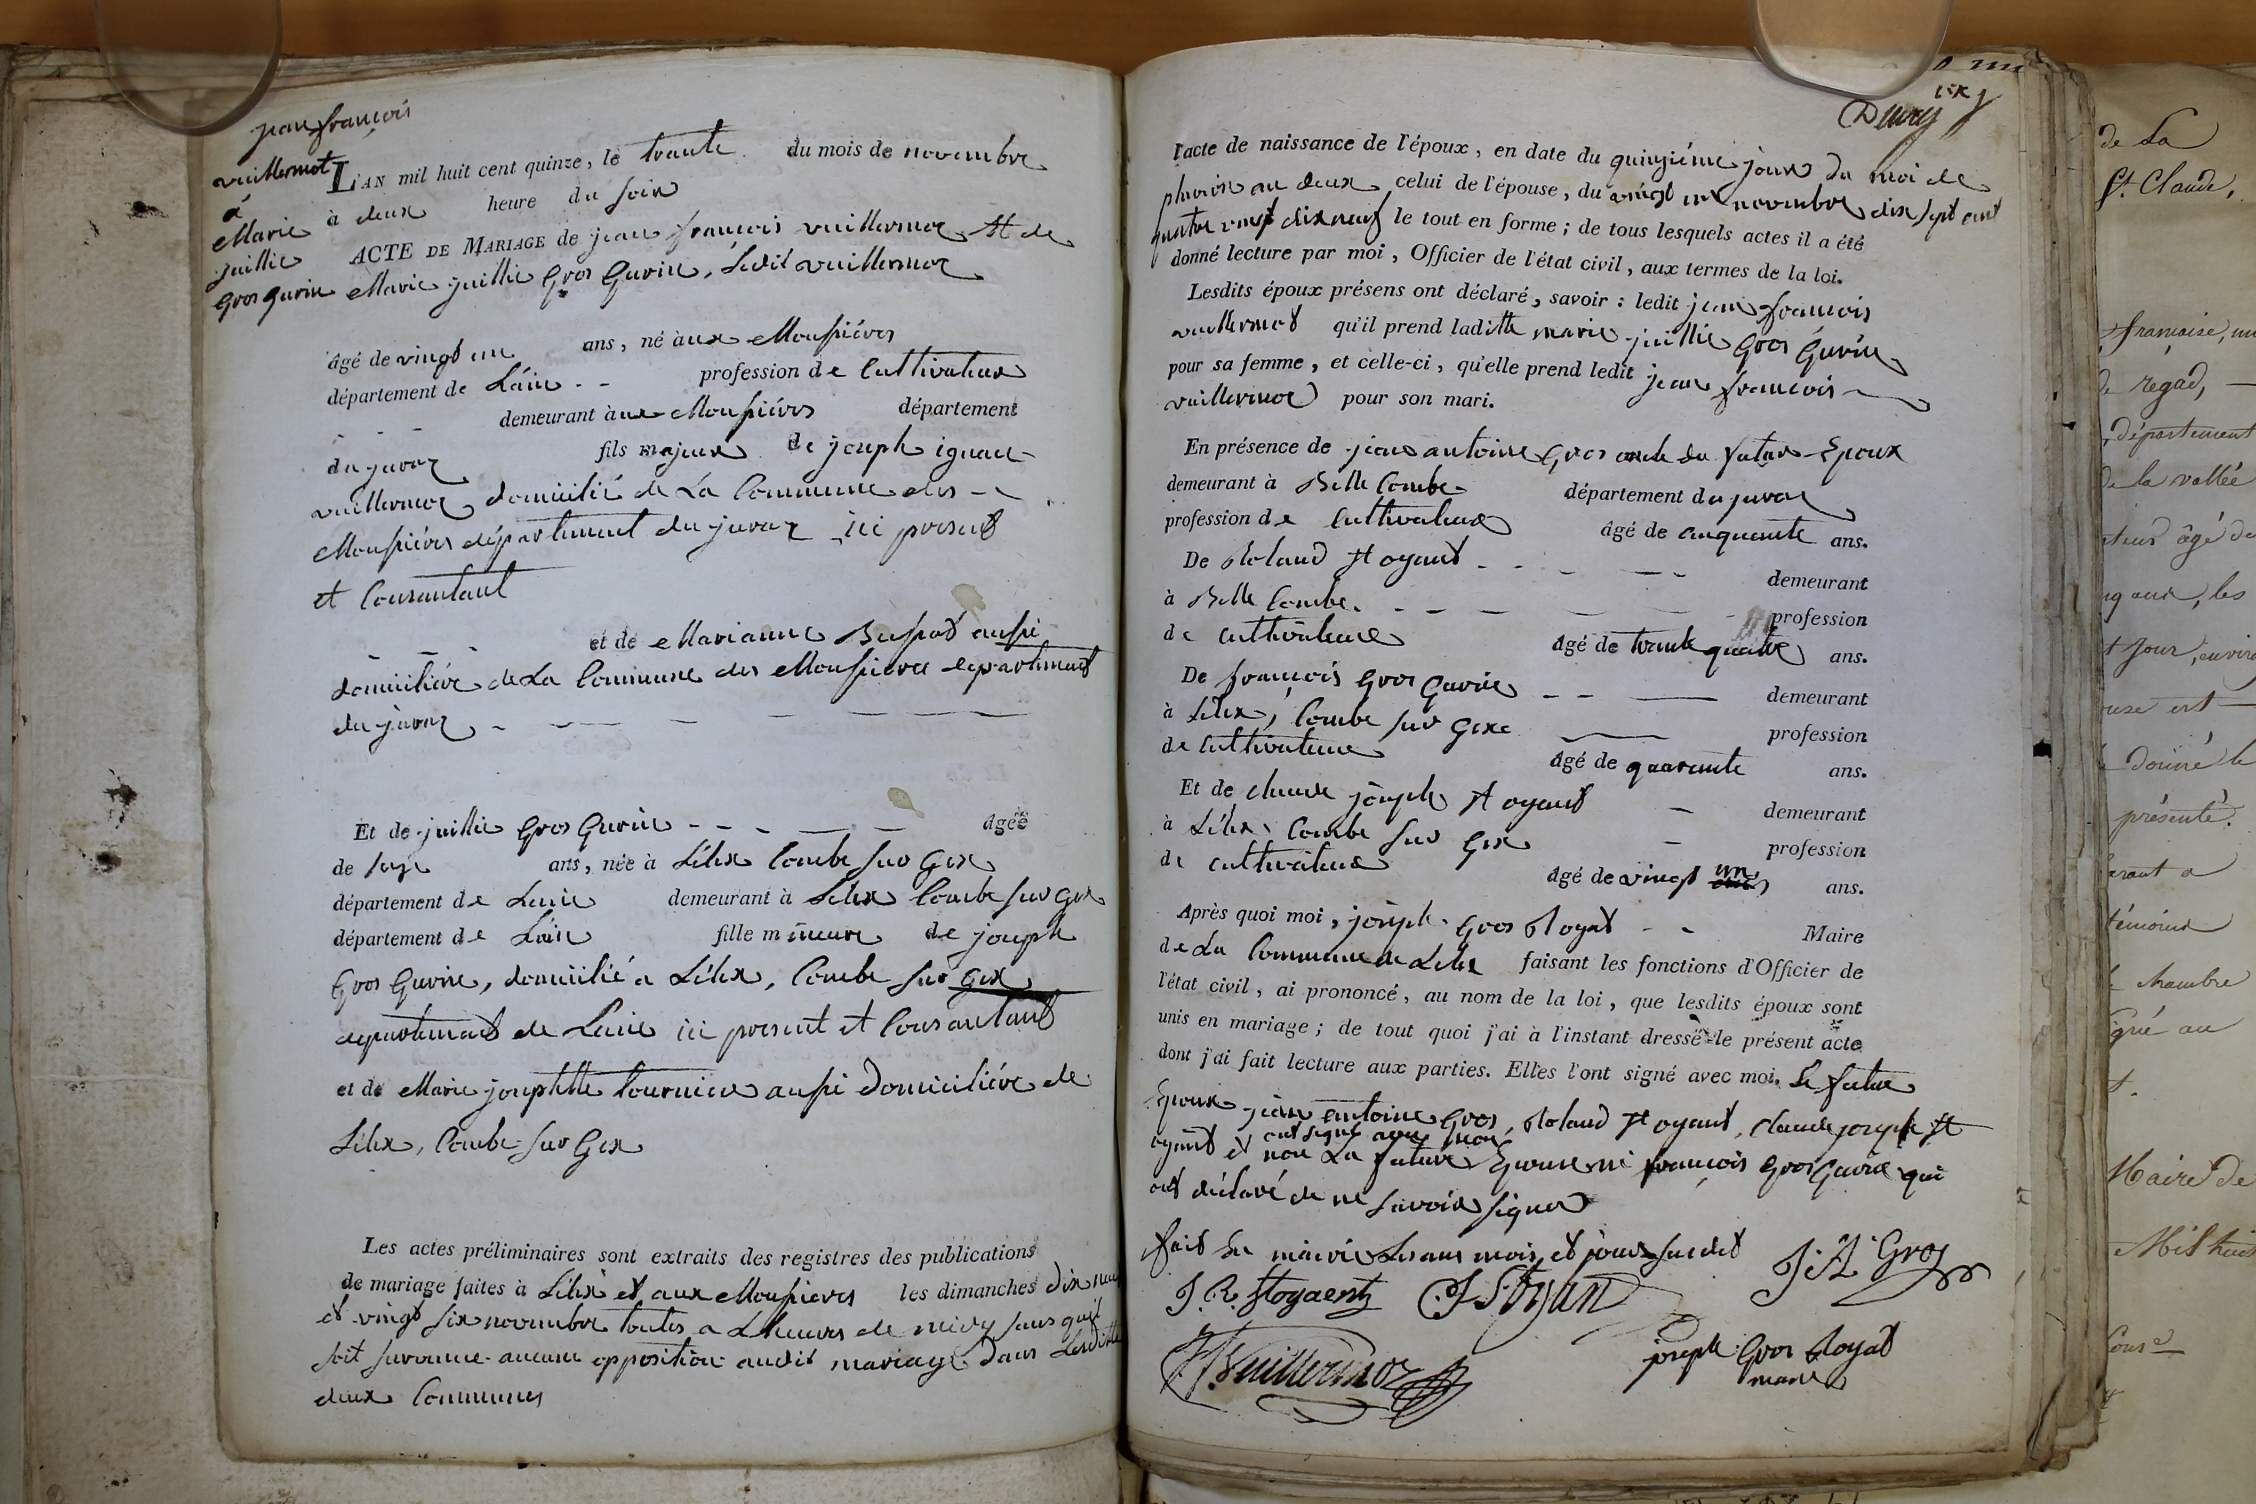 jean françois
vuillermot
à
Marie
juillie
Gros Gurin
L'AN mil huit cent quinze, le trante du mois de novembre
à deux heure du soir
ACTE DE MARIAGE de jean françois vuillermoz et de
Marie juillie Gros Gurin, Ledit vuillermoz
âgé de vingt un ans, né aux Mouspiéres
département de Lain - - profession de Cultivateur
demeurant aux Mouspiéres département
du juraz fils majeur de joseph ignace
vuillermoz, domicilié de La Commune des
Mouspiéres département du juraz ici present
et Consantant
et de Marianne Busod aussi
domiciliére de La Commune des Mouspieres département
du juraz
Et de juillie Gros Gurin - - - âgée
de seize ans, née à Lélex Combe sur Gex
département de Lain demeurant à Lelex Combe sur Gex
département de Lain fille mineure de joseph
Gros Gurin, domicilié a Lélex, Combe sur Gex
département de Lain ici present et Consantant
et de Marie josephtte tournier aussi domiciliére de
Lélex, Combe sur Gex
Les actes préliminaires sont extraits des registres des publications
de mariage faites à Lélex et aux Mouspieres les dimanches dix neuf
et vingt six novembre toutes a L'heures de midy sans qu'il
soit survenue aucune opposition audit mariage dans Lesdittes
deux Communes
l'acte de naissance de l'époux, en date du quinziéme jour du moi de
pluviose an deux, celui de l'épouse, du vingt un novembre dix sept cent
quatre vingt dix neuf le tout en forme; de tous lesquels actes il a été
donné lecture par moi, Officier de l'état civil, aux termes de la loi.
Lesdits époux présens ont déclaré, savoir : ledit jean françois
vuillermot qu'il prend laditte marie juillie Gros Gurin
pour sa femme, et celle-ci, qu'elle prend ledit jean françois
vuillermoz pour son mari.
En présence de jean antoine Gros oncle du futur Epoux
demeurant à Belle Combe département du juraz
profession de Cultivateur âgé de cinquante ans.
De Roland St oyant - - demeurant
à Belle Combe. profession
de Cultivateur âgé de trante quatre ans.
De françois Gros Gurin demeurant
à Lélex, Combe sur Gex profession
de Cultivateur âgé de quarante ans.
Et de claude joseph St oyant demeurant
à Lélex, Combe sur Gex profession
de cultivateur âgé de vingt un ans.
Après quoi moi, joseph Gros Royat - - Maire
de La Commune de Lélex faisant les fonctions d'Officier de
l'état civil, ai prononcé, au nom de la loi, que lesdits époux sont
unis en mariage; de tout quoi j'ai à l'instant dressé le présent acte
dont j'ai fait lecture aux parties. Elles l'ont signé avec moi. Le futur
Epoux jean antoine Gros, Roland St oyant, claude joseph St
oyant et ont signé avec moi
non La future Epouse ni françois Gros Gurin qui
ont déclaré de ne savoir signer
fait En mairie Les an mois et jour susdit
J. A. Gros
J. R. Stoyaent
C. J. Stoyan
J f Vuillermoz
joseph Gros Royat
maire
de La
St. Claude,
française,
de regad,
département
de la vallée
âgé de
les
et jour,
donné le
présenté.
témoins
chambre
signé au
Maire de
Mil huit